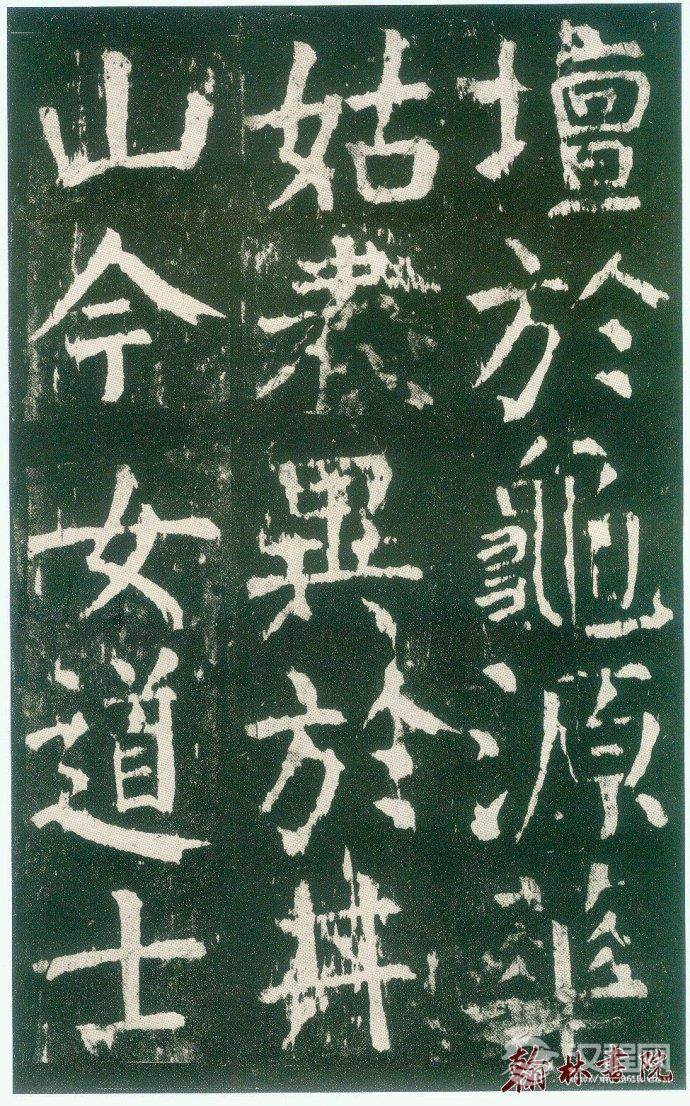 壇於龜源華
姑表異於井
山今女道士
翰林書院